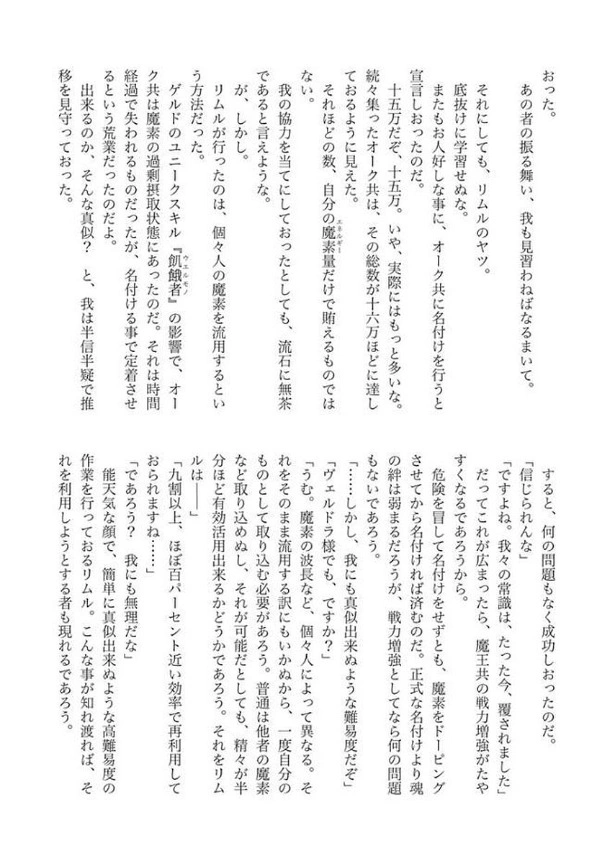 おった。
あの者の振る舞い、我も見習わねばなるまいて。
それにしても、リムルのヤツ。
底抜けに学習せぬな。
またもお人好しな事に、オーク共に名付けを行うと
宣言しおったのだ。
十五万だぞ、十五万。いや、実際にはもっと多いな。
続々集ったオーク共は、その総数が十六万ほどに達し
ておるように見えた。
それほどの数、自分の魔素量だけで賄えるものでは
エネルギー
ない。
我の協力を当てにしておったとしても、流石に無茶
であると言えような。
が、しかし。
リムルが行ったのは、個々人の魔素を流用するとい
う方法だった。
ゲルドのユニークスキル『飢餓者』の影響で、オー
ウエルモノ
ク共は魔素の過剰摂取状態にあったのだ。それは時間
経過で失われるものだったが、名付ける事で定着させ
るという荒業だったのだよ。
出来るのか、そんな真似？　と、我は半信半疑で推
移を見守っておった。
すると、何の問題もなく成功しおったのだ。
「信じられんな」
「ですよね。我々の常識は、たった今、覆されました」
だってこれが広まったら、魔王共の戦力増強がたや
すくなるであろうから。
危険を冒して名付けをせずとも、魔素をドーピング
させてから名付ければ済むのだ。正式な名付けより魂
の絆は弱まるだろうが、戦力増強としてなら何の問題
もないであろう。
「……しかし、我にも真似出来ぬような難易度だぞ」
「ヴェルドラ様でも、ですか？」
「うむ。魔素の波長など、個々人によって異なる。そ
れをそのまま流用する訳にもいかぬから、一度自分の
ものとして取り込む必要があろう。普通は他者の魔素
など取り込めぬし、それが可能だとしても、精々が半
分ほど有効活用出来るかどうかであろう。それをリム
ルは――」
「九割以上、ほぼ百パーセント近い効率で再利用して
おられますね……」
「であろう？　我にも無理だな」
能天気な顔で、簡単に真似出来ぬような高難易度の
作業を行っておるリムル。こんな事が知れ渡れば、そ
れを利用しようとする者も現れるであろう。